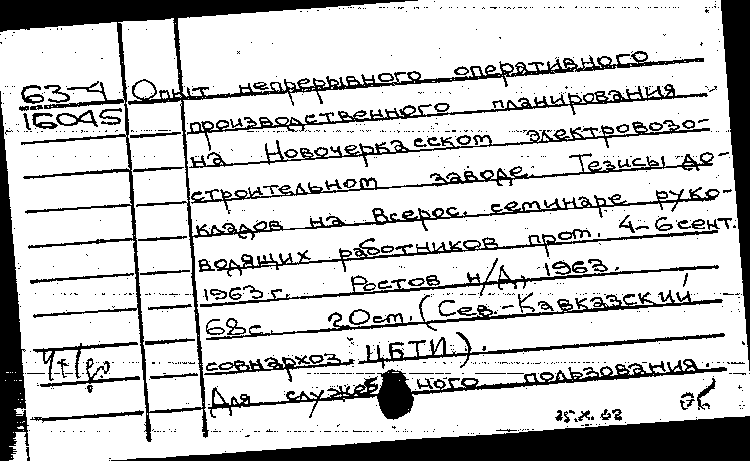 63-4 Опыт непрерывного оперативного
16045 производственного планирования
на Новочеркасском электровозо-
строительном заводе. Тезисы до-
кладов на Всерос. семинаре руко-
водящих работников пром. 4-6 сент.
1963 г. Ростов н/Д, 1963.
68 с. 20 см. (Сев.-Кавказский
совнархоз. ЦБТИ.).
Для служебного пользования.